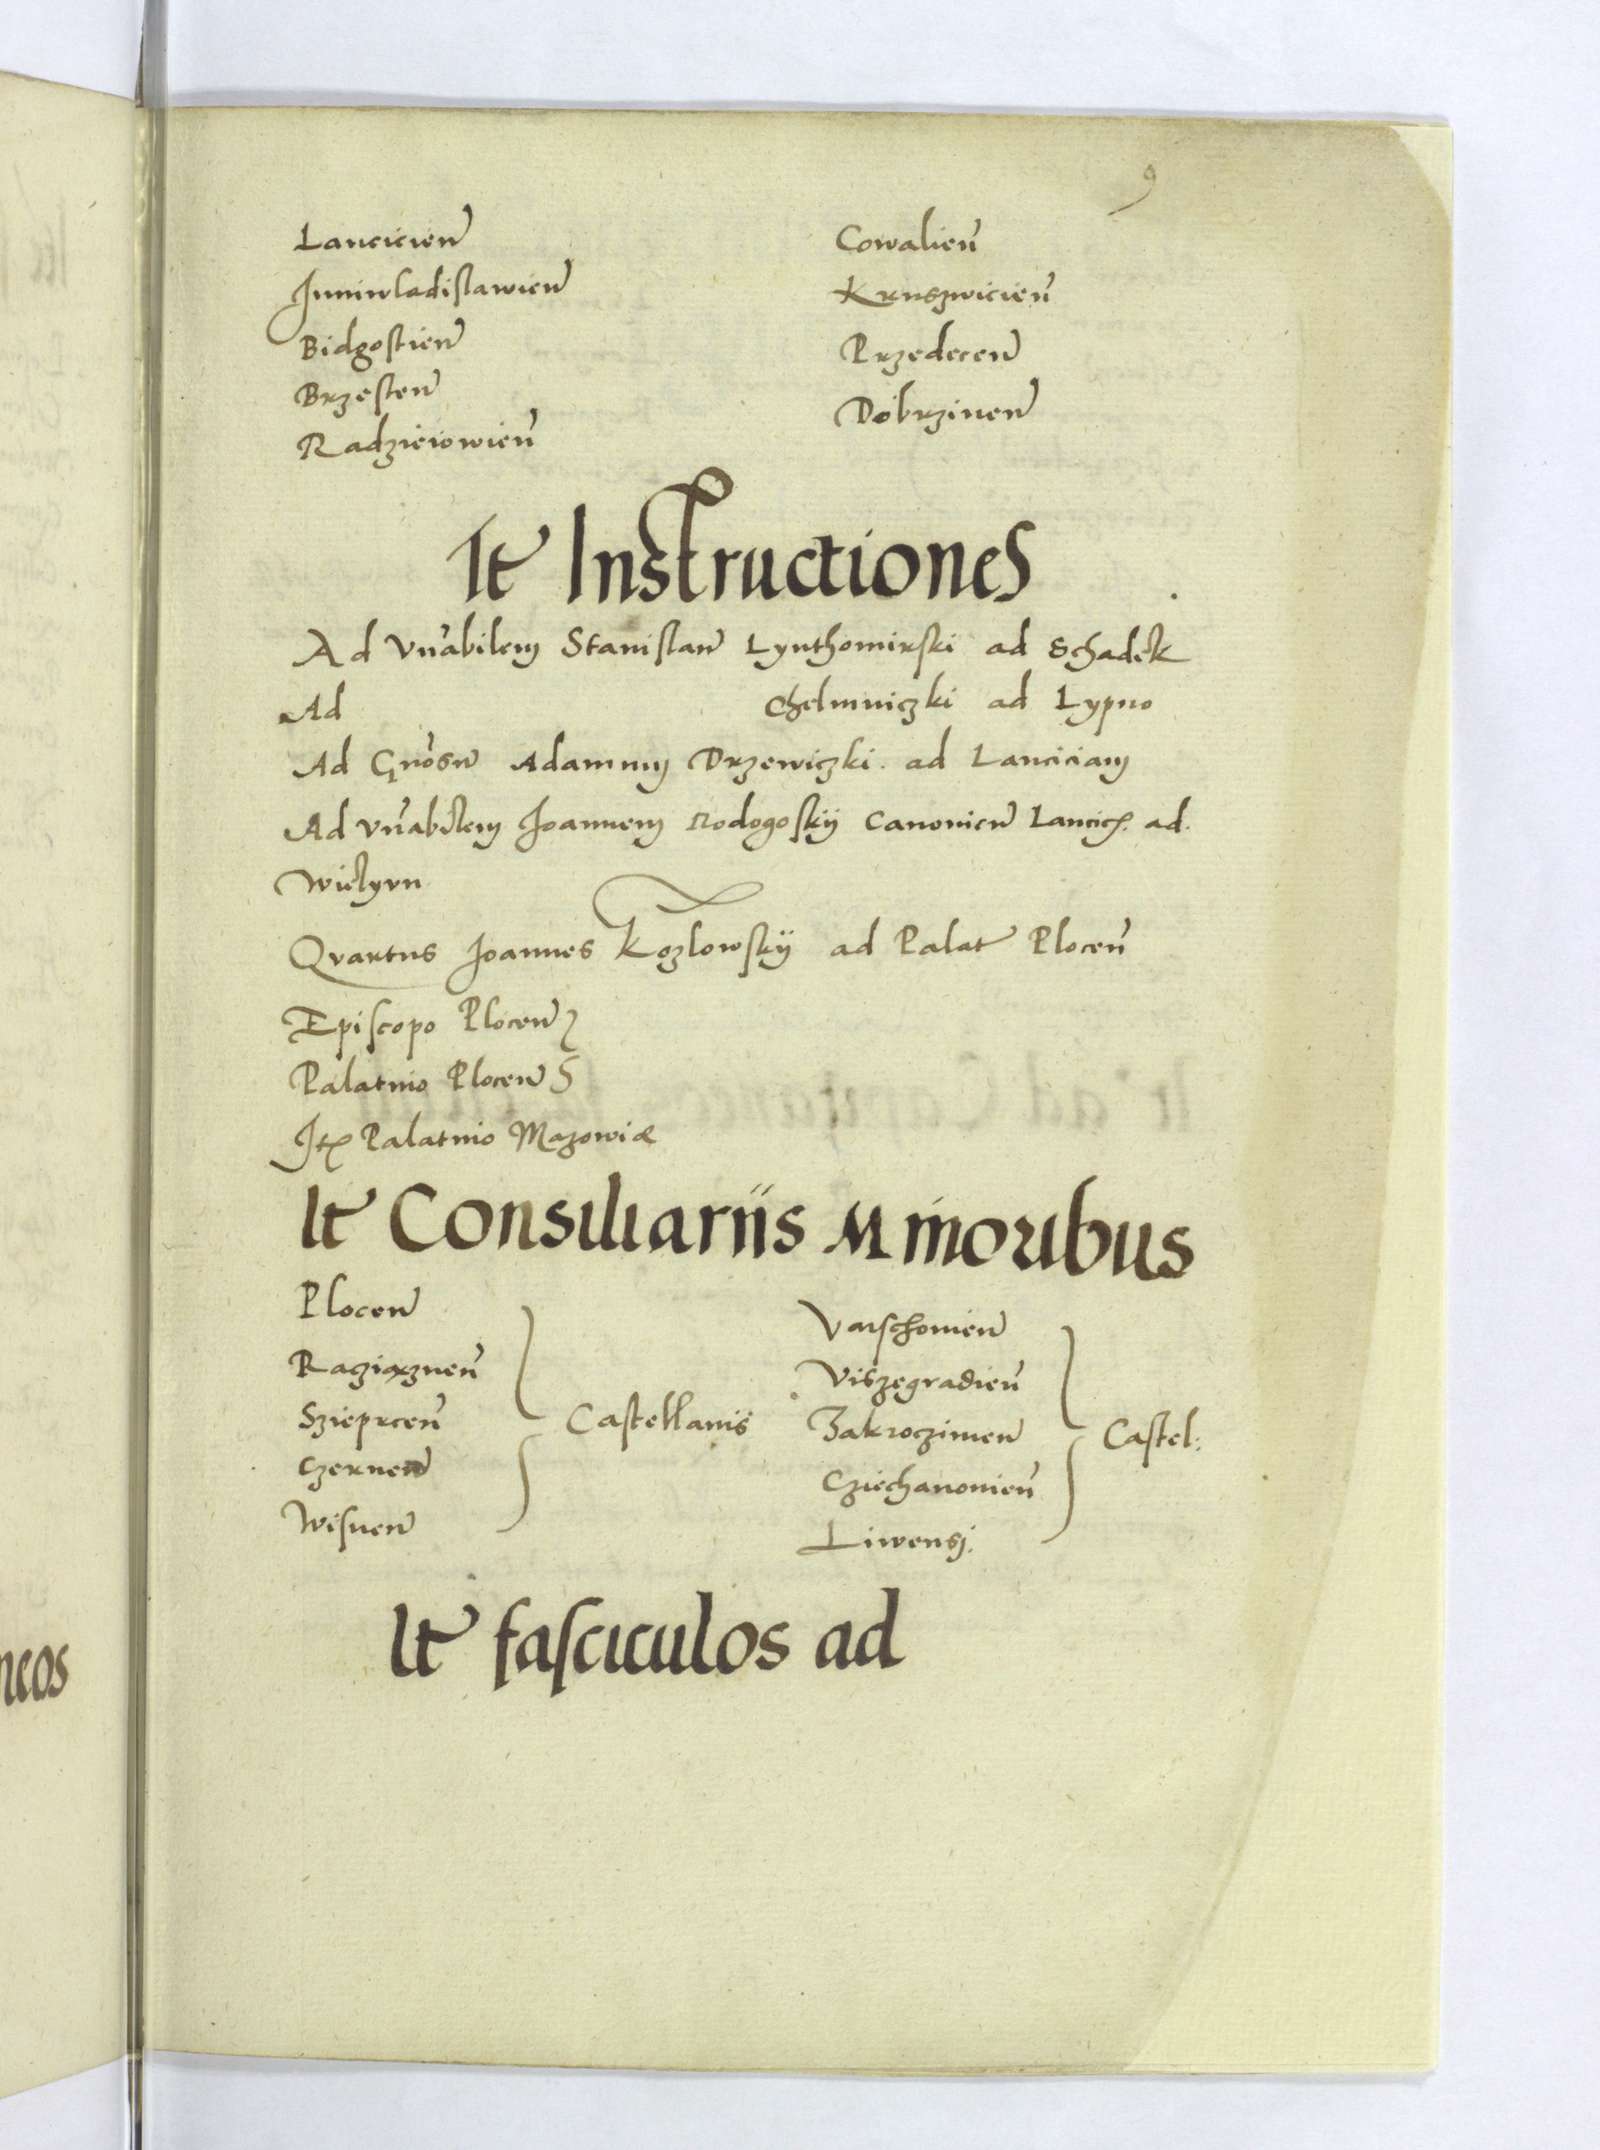 9
Lancicien
Juniwladislawien
Bidgostien
Brzesten
Radzieiowien
Cowalien
Kruszwicien
Przedecen
Dobrzinen
It Instructiones
Ad Vnabilem Stanislaum Lynthomirski ad Schadek
Ad Chelmniczki ad Lypno
Ad Gnosum Adamum Drzewiczki ad Lanciciam
Ad vnabilem Joannem Rodogoskij Canonicum Lancic. ad
Wielyun
Qvartus Joannes Kozlowskij ad Palat Plocen
Episcopo Plocen
Palatino Plocen
Itę Palatino Mazowiæ
It Consiliariis Minoribus
Plocen
Raziąznen
Szieprcen
Czernen
Wisnen
Castellanis
Varschouien
Viszegradien
Zakroczimen
Cziechanouien
Liwensi.
Castel:
It fasciculos ad
ncos